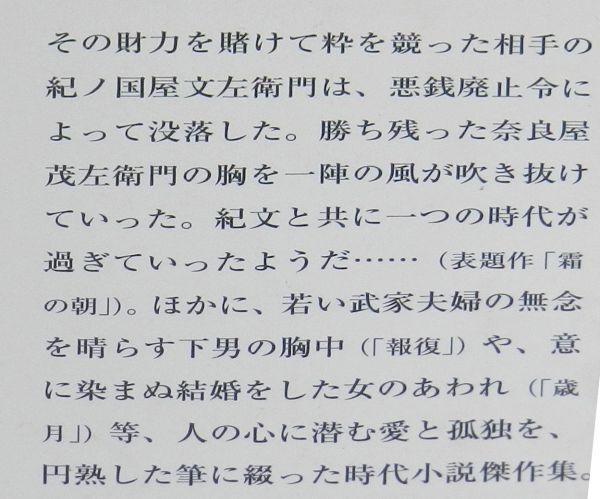 その財力を賭けて粋を競った相手の
紀ノ国屋文左衛門は、悪銭廃止令に
よって没落した。勝ち残った奈良屋
茂左衛門の胸を一陣の風が吹き抜け
ていった。紀文と共に一つの時代が
過ぎていったようだ……（表題作「霜
の朝」）。ほかに、若い武家夫婦の無念
を晴らす下男の胸中（「報復」）や、意
に染まぬ結婚をした女のあわれ（「歳
月」）等、人の心に潜む愛と孤独を、
円熟した筆に綴った時代小説傑作集。